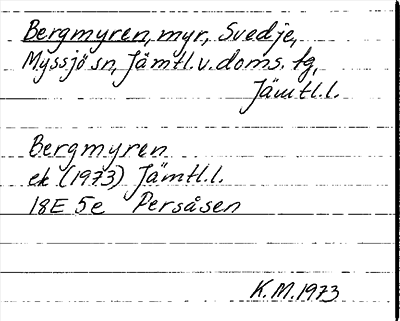 Bergmyren, myr, Svedje,
Myssjö sn, Jämtl. v. doms. tg,
Jämtl.l.
Bergmyren
ek (1973) Jämtl.l.
18E 5e Persåsen
K.M. 1973